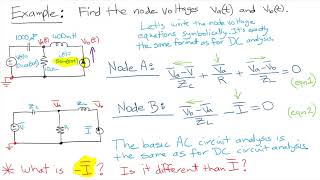 Example: Find the node voltages Va(t) and Vb(t).
Let's write the node
equations symbolically. It's exactly
the same format as for DC analysis.
1000μF Va(t) 400mH Vb(t)
Node A: Va-V/ZC + Va/R + Va-Vb/ZL = 0
(eqn1)
Node B: Vb-Va/ZL - I = 0
(eqn2)
ZC Va ZL Vb
V R I
The basic AC circuit analysis is
the same as for DC circuit analysis.
* What is -I? Is it different than I?